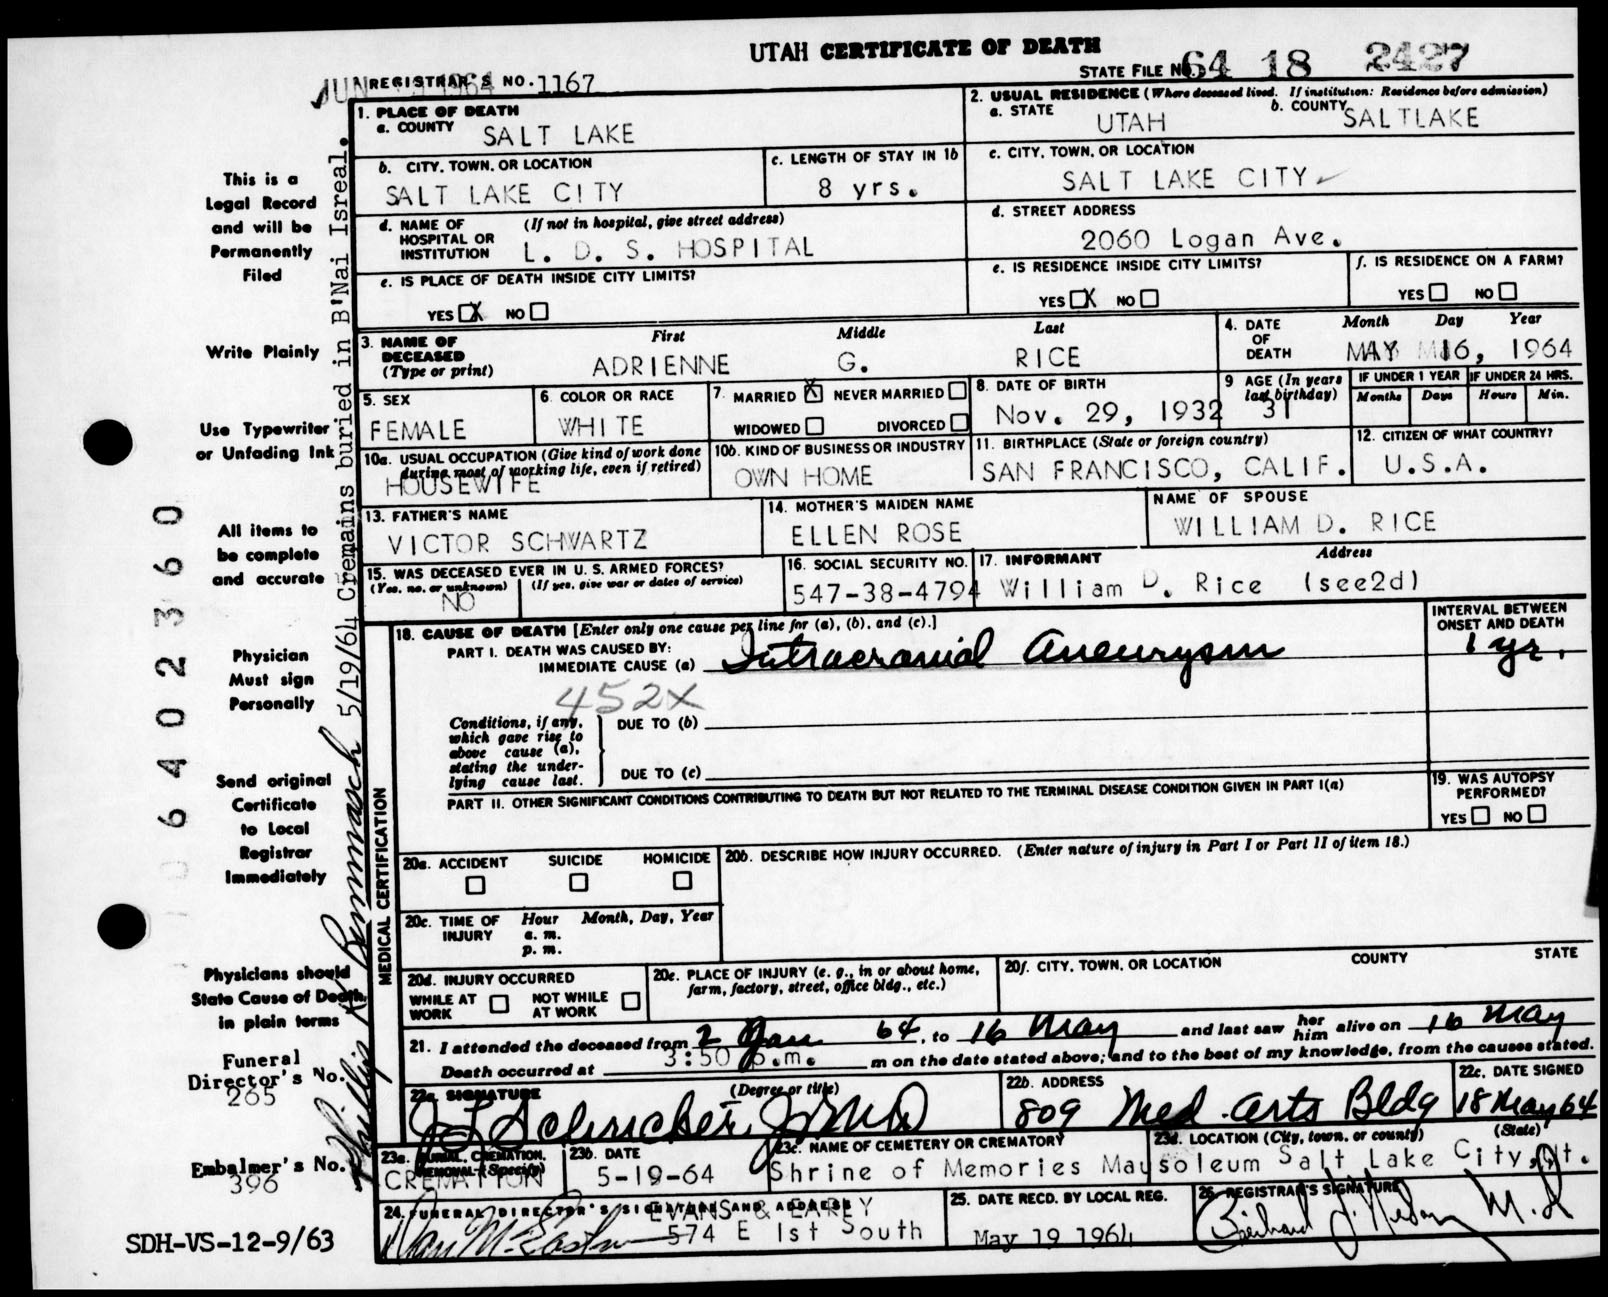 UTAH CERTIFICATE OF DEATH
STATE FILE NO. 64 18 2427
JUN 1964
REGISTRAR'S NO. 1167
1. PLACE OF DEATH
a. COUNTY SALT LAKE
2. USUAL RESIDENCE (Where deceased lived. If institution: Residence before admission)
a. STATE UTAH b. COUNTY SALTLAKE
b. CITY, TOWN, OR LOCATION SALT LAKE CITY
c. LENGTH OF STAY IN 1b 8 yrs.
c. CITY, TOWN, OR LOCATION SALT LAKE CITY
d. NAME OF HOSPITAL OR INSTITUTION (If not in hospital, give street address) L. D. S. HOSPITAL
d. STREET ADDRESS 2060 Logan Ave.
e. IS PLACE OF DEATH INSIDE CITY LIMITS?
YES X NO
e. IS RESIDENCE INSIDE CITY LIMITS?
YES X NO
f. IS RESIDENCE ON A FARM?
YES NO
3. NAME OF DECEASED (Type or print)
First Middle Last
ADRIENNE G. RICE
4. DATE OF DEATH Month Day Year
MAY 16, 1964
5. SEX FEMALE
6. COLOR OR RACE WHITE
7. MARRIED X NEVER MARRIED
WIDOWED DIVORCED
8. DATE OF BIRTH Nov. 29, 1932
9 AGE (In years last birthday) 31
IF UNDER 1 YEAR Months Days
IF UNDER 24 HRS. Hours Min.
10a. USUAL OCCUPATION (Give kind of work done during most of working life, even if retired)
HOUSEWIFE
10b. KIND OF BUSINESS OR INDUSTRY OWN HOME
11. BIRTHPLACE (State or foreign country) SAN FRANCISCO, CALIF.
12. CITIZEN OF WHAT COUNTRY? U.S.A.
13. FATHER'S NAME VICTOR SCHWARTZ
14. MOTHER'S MAIDEN NAME ELLEN ROSE
NAME OF SPOUSE WILLIAM D. RICE
15. WAS DECEASED EVER IN U. S. ARMED FORCES?
(Yes, no, or unknown) NO (If yes, give war or dates of service)
16. SOCIAL SECURITY NO. 547-38-4794
17. INFORMANT Address
William D. Rice (see2d)
MEDICAL CERTIFICATION
18. CAUSE OF DEATH [Enter only one cause per line for (a), (b), and (c).]
INTERVAL BETWEEN ONSET AND DEATH
PART I. DEATH WAS CAUSED BY:
IMMEDIATE CAUSE (a) Intracranial Aneurysm 1 yr.
452X
Conditions, if any, which gave rise to above cause (a), stating the underlying cause last.
DUE TO (b)
DUE TO (c)
PART II. OTHER SIGNIFICANT CONDITIONS CONTRIBUTING TO DEATH BUT NOT RELATED TO THE TERMINAL DISEASE CONDITION GIVEN IN PART I(a)
19. WAS AUTOPSY PERFORMED?
YES NO
20a. ACCIDENT SUICIDE HOMICIDE
20b. DESCRIBE HOW INJURY OCCURRED. (Enter nature of injury in Part I or Part II of item 18.)
20c. TIME OF INJURY Hour Month, Day, Year
a. m.
p. m.
20d. INJURY OCCURRED
WHILE AT WORK NOT WHILE AT WORK
20e. PLACE OF INJURY (e. g., in or about home, farm, factory, street, office bldg., etc.)
20f. CITY, TOWN, OR LOCATION COUNTY STATE
21. I attended the deceased from 2 Jan 64, to 16 May and last saw her him alive on 16 May
Death occurred at 3:50 p.m. m on the date stated above; and to the best of my knowledge, from the causes stated.
22a. SIGNATURE (Degree or title)
22b. ADDRESS 809 Med. Arts Bldg
22c. DATE SIGNED 18 May 64
23a. BURIAL, CREMATION, REMOVAL (Specify) CREMATION
23b. DATE 5-19-64
23c. NAME OF CEMETERY OR CREMATORY
Shrine of Memories Mausoleum
23d. LOCATION (City, town, or county) (State)
Salt Lake City, Ut.
24. FUNERAL DIRECTOR'S SIGNATURE AND ADDRESS
EVANS & EARLY
574 E 1st South
25. DATE RECD. BY LOCAL REG. May 19 1964
26. REGISTRAR'S SIGNATURE
M.D
This is a
Legal Record
and will be
Permanently
Filed
Write Plainly
Use Typewriter
or Unfading Ink
All items to
be complete
and accurate
Physician
Must sign
Personally
Send original
Certificate
to Local
Registrar
Immediately
Physicians should
State Cause of Death
in plain terms
Funeral
Director's No.
265
Embalmer's No.
396
SDH-VS-12-9/63
6402360
5/19/64 Cremains buried in B'Nai Isreal.